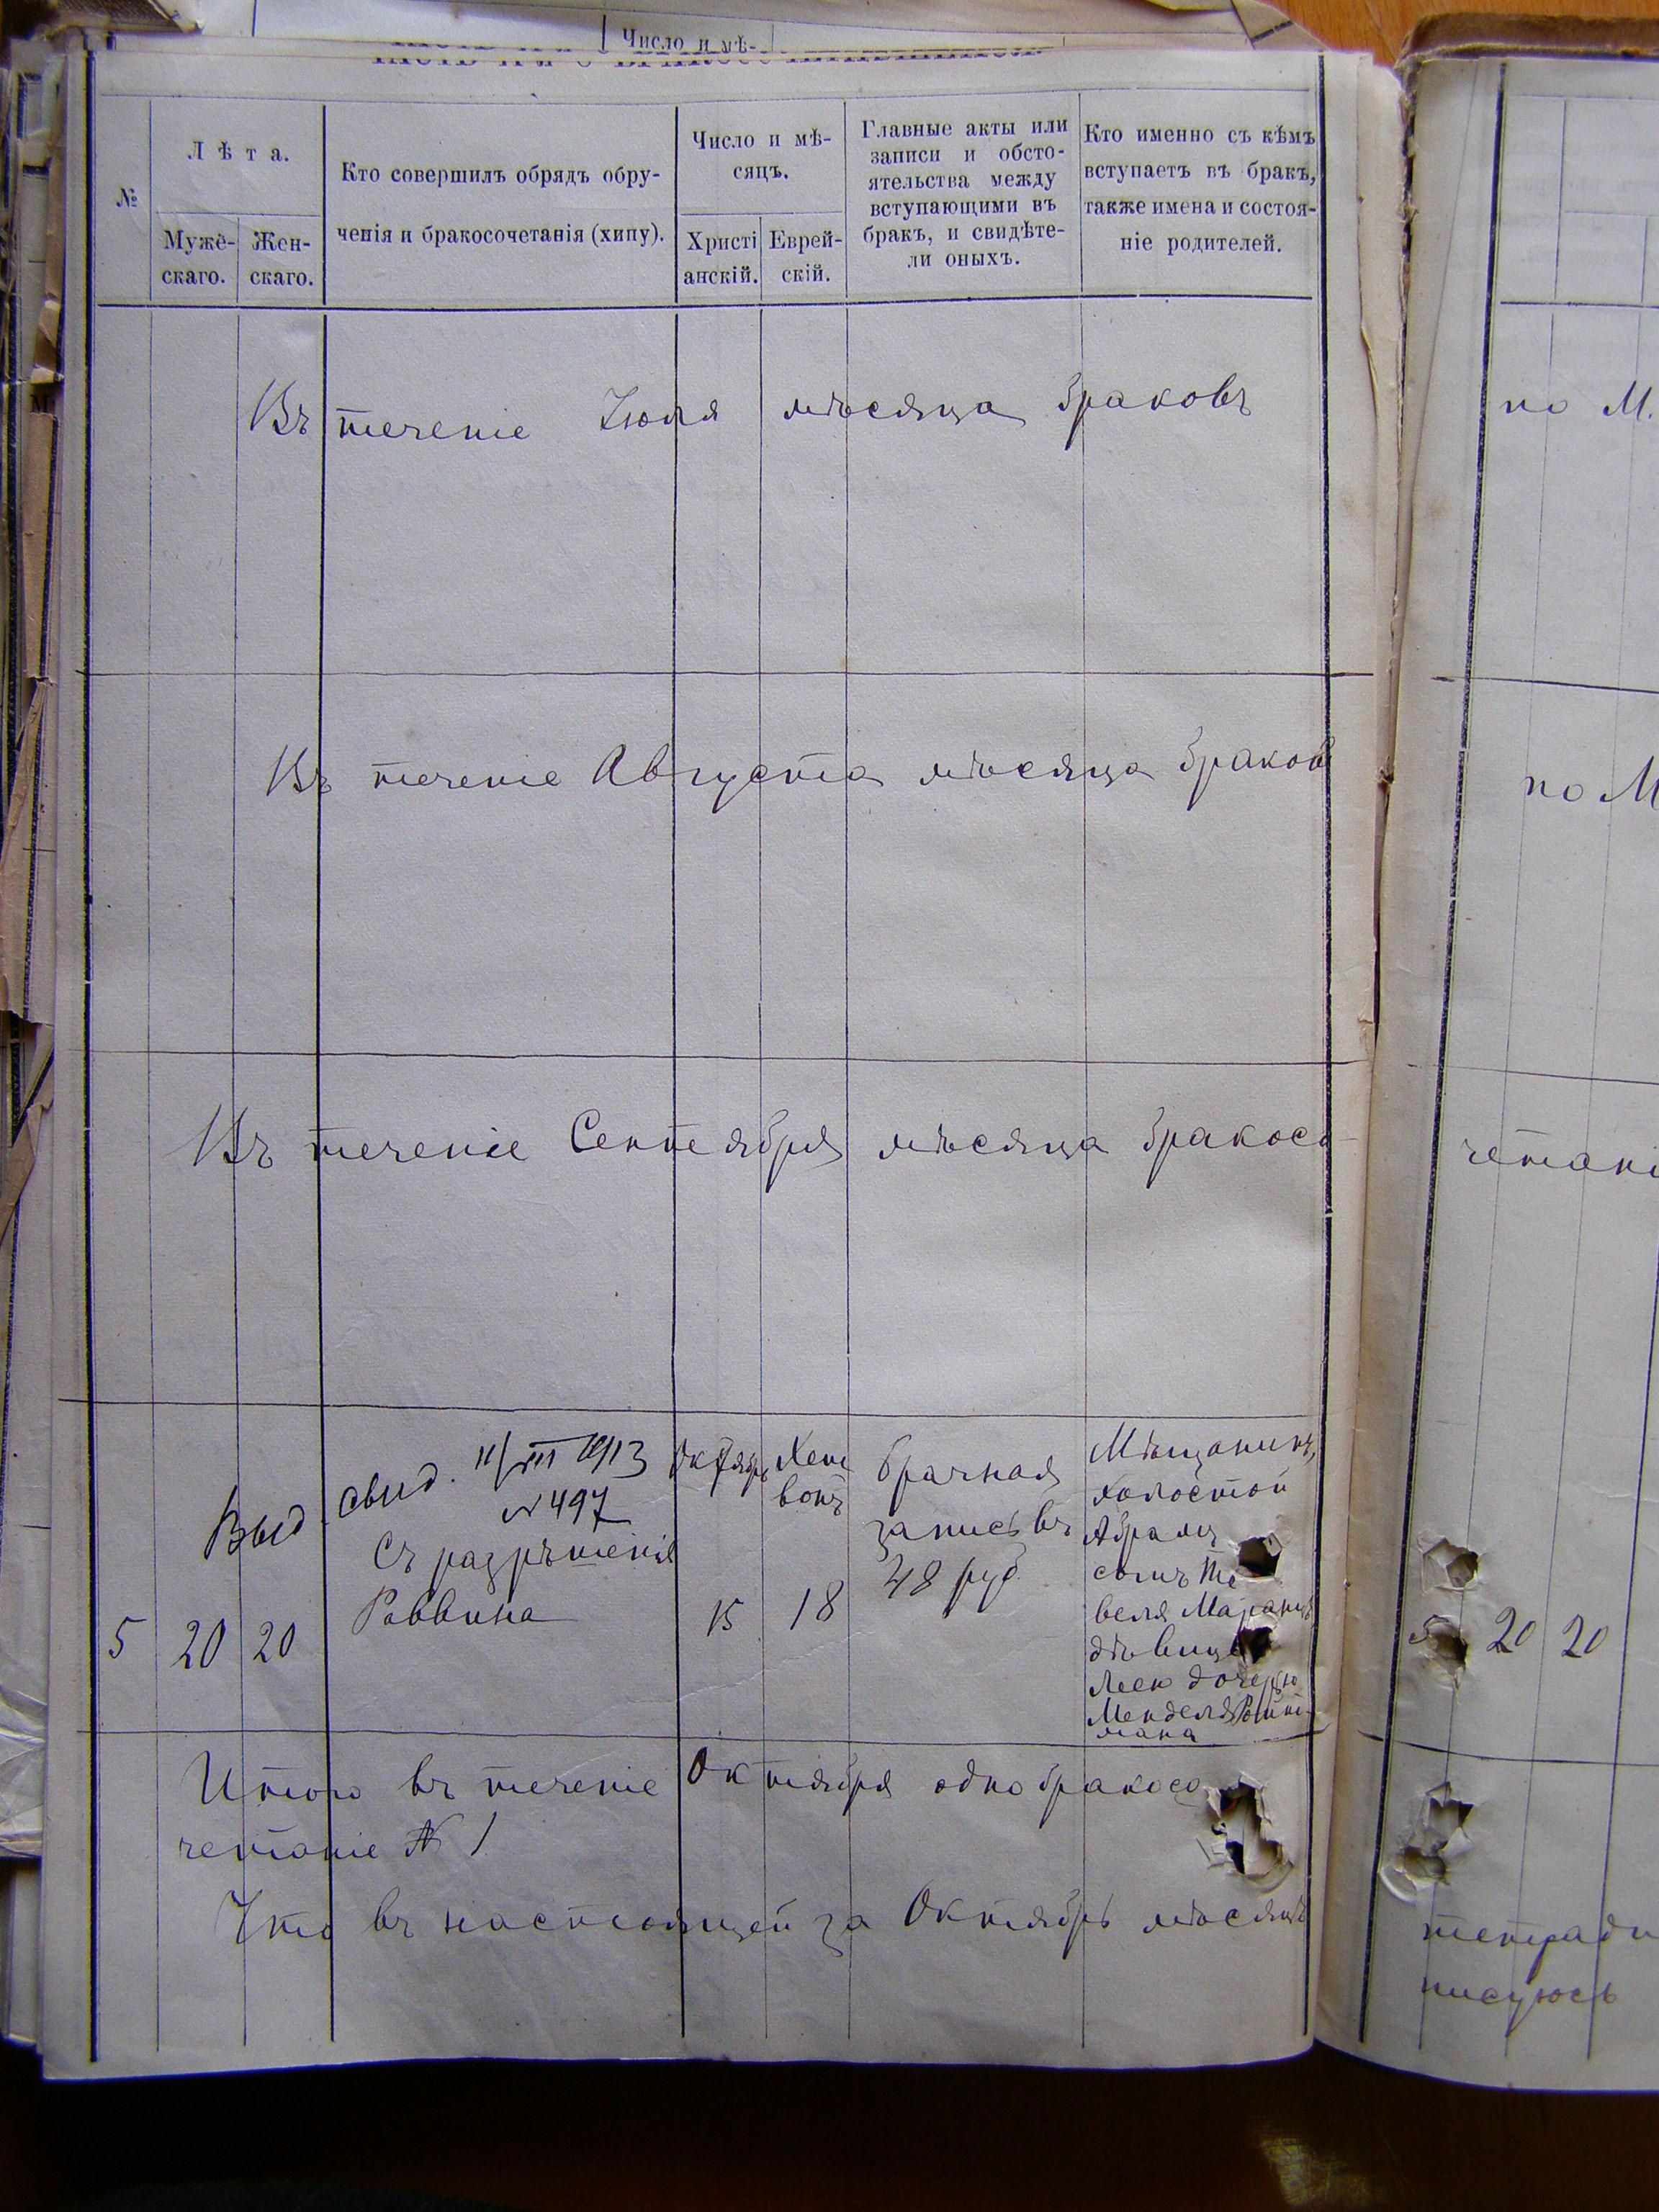 Число и мѣ-
№
Лѣта.
Мужѐ-
скаго.
Жен-
скаго.
Кто совершилъ обрядъ обру-
ченія и бракосочетанія (хипу).
Число и мѣ-
сяцъ.
Христі
анскій.
Еврей-
скій.
Главные акты или
записи и обсто-
ятельства между
вступающими въ
бракъ, и свидѣте-
ли оныхъ.
Кто именно съ кѣмъ
вступаетъ въ бракъ,
также имена и состоя-
ніе родителей.
Въ теченіе Іюля мѣсяца браковъ
Въ теченіе Августа мѣсяца браковъ
Въ теченіе Сентября мѣсяца бракосо-
5
20
20
Выд. свид. 11/III 1913
№ 497
Съ разрѣшенія
Раввина
Октябрь
15
18
брачная
запись въ
48 руб.
Мѣщанинъ,
холостой
Абрамъ
сынъ
веля
дѣвицею
Леею дочерью
Менделя
мана
Итого въ теченіе Октября одно бракосо
четаніе № 1
Что въ настоящей за Октябрь мѣсяцъ
по М.
по М
четані
20
20
тетради
писуюсь